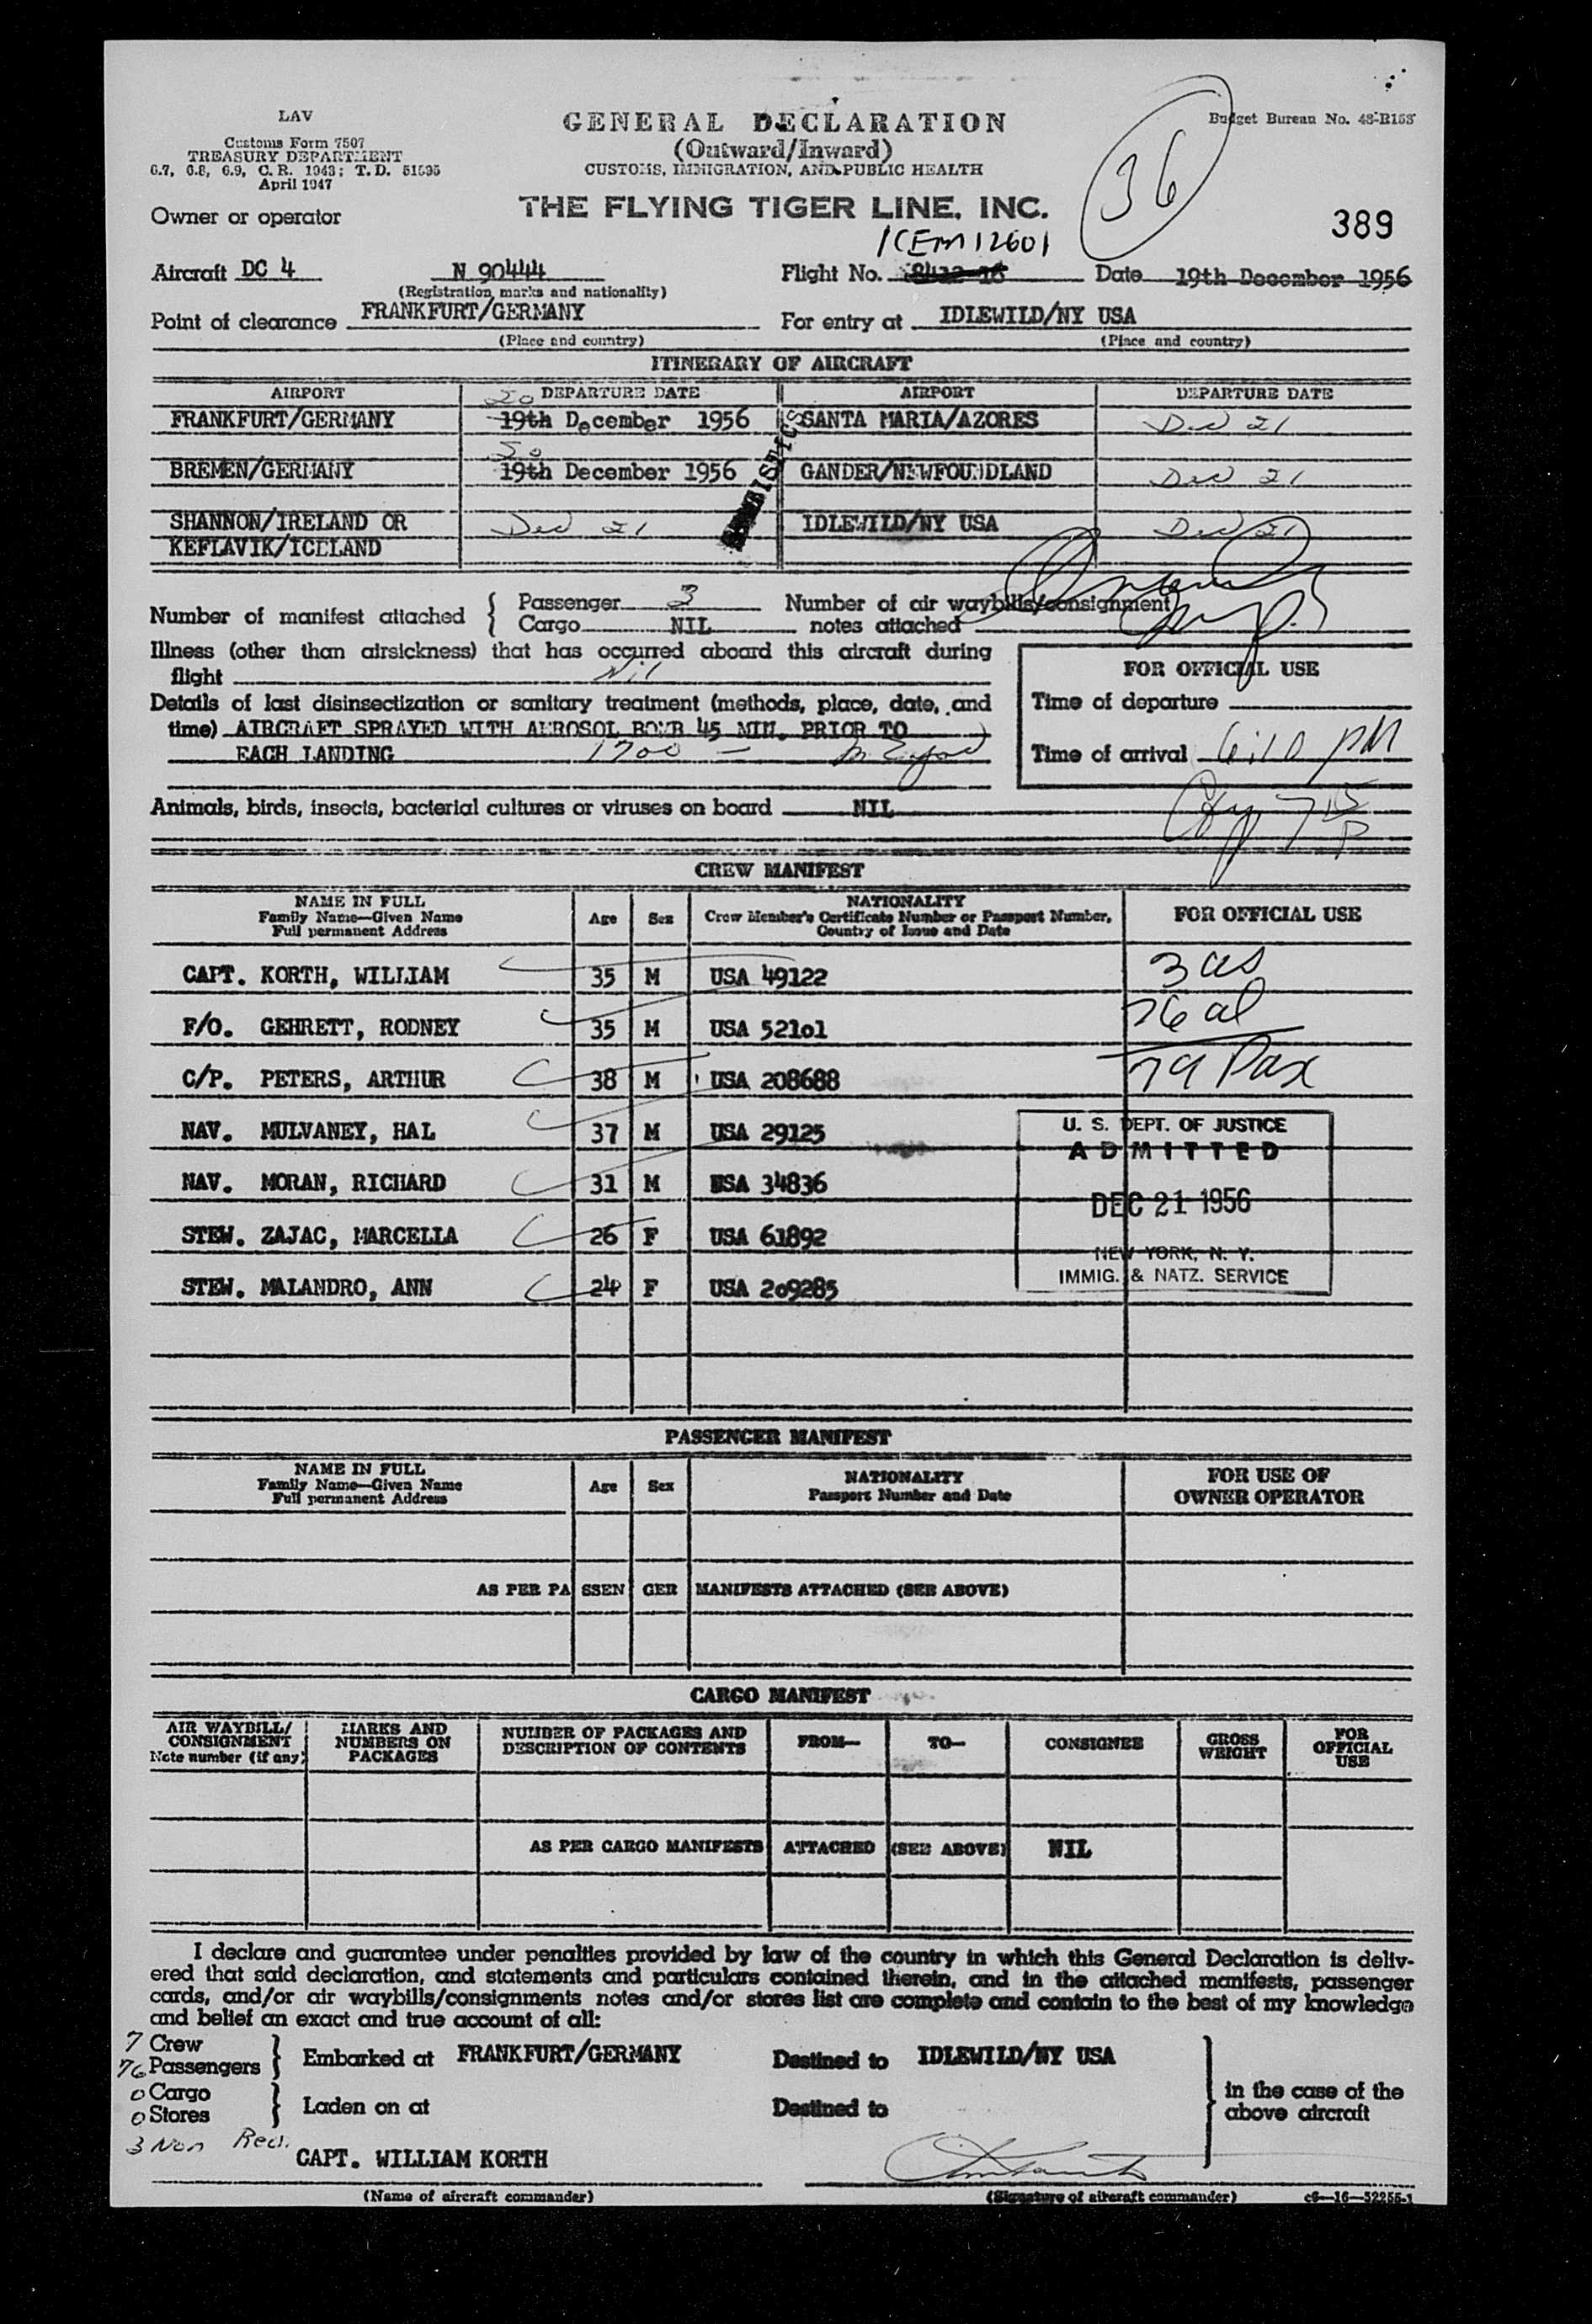 LAV
Customs Form 7507
TREASURY DEPARTMENT
6.7, 6.8, 6.9, C. R. 1943; T. D. 51635
April 1947
GENERAL DECLARATION
(Outward/Inward)
CUSTOMS, IMMIGRATION, AND PUBLIC HEALTH
Budget Bureau No. 48-R153
36
Owner or operator
THE FLYING TIGER LINE, INC.
389
ICEM 12601
Aircraft DC 4 N 90444 Flight No. 8412-16 Date 19th December 1956
(Registration marks and nationality)
Point of clearance FRANKFURT/GERMANY For entry at IDLEWILD/NY USA
(Place and country) (Place and country)
ITINERARY OF AIRCRAFT
AIRPORT DEPARTURE DATE AIRPORT DEPARTURE DATE
20
FRANKFURT/GERMANY 19th December 1956 SANTA MARIA/AZORES Dec 21
20
BREMEN/GERMANY 19th December 1956 GANDER/NEWFOUNDLAND Dec 21
SHANNON/IRELAND OR Dec 21 IDLEWILD/NY USA Dec 21
KEFLAVIK/ICELAND
STATISTICS
Number of manifest attached { Passenger 3 Number of air waybills/consignment
Cargo NIL notes attached
Illness (other than airsickness) that has occurred aboard this aircraft during
flight Nil
FOR OFFICIAL USE
Details of last disinsectization or sanitary treatment (methods, place, date, and Time of departure
time) AIRCRAFT SPRAYED WITH AEROSOL BOMB 45 MIN. PRIOR TO
EACH LANDING 1700 — Time of arrival 6:10 PM
Animals, birds, insects, bacterial cultures or viruses on board NIL
7 15 P
CREW MANIFEST
NAME IN FULL
Family Name—Given Name
Full permanent Address
Age Sex
NATIONALITY
Crew Member's Certificate Number or Passport Number,
Country of Issue and Date
FOR OFFICIAL USE
CAPT. KORTH, WILLIAM 35 M USA 49122 3 us
F/O. GEHRETT, RODNEY 35 M USA 52101 76 al
C/P. PETERS, ARTHUR 38 M USA 208688 79 Pax
NAV. MULVANEY, HAL 37 M USA 29125
NAV. MORAN, RICHARD 31 M USA 34836
STEW. ZAJAC, MARCELLA 26 F USA 61892
STEW. MALANDRO, ANN 24 F USA 209285
U. S. DEPT. OF JUSTICE
ADMITTED
DEC 21 1956
NEW YORK, N. Y.
IMMIG. & NATZ. SERVICE
PASSENGER MANIFEST
NAME IN FULL
Family Name—Given Name
Full permanent Address
Age Sex
NATIONALITY
Passport Number and Date
FOR USE OF
OWNER OPERATOR
AS PER PASSENGER MANIFESTS ATTACHED (SEE ABOVE)
CARGO MANIFEST
AIR WAYBILL/
CONSIGNMENT
Note number (if any)
MARKS AND
NUMBERS ON
PACKAGES
NUMBER OF PACKAGES AND
DESCRIPTION OF CONTENTS
FROM— TO— CONSIGNEE
GROSS
WEIGHT
FOR
OFFICIAL
USE
AS PER CARGO MANIFESTS ATTACHED (SEE ABOVE) NIL
I declare and guarantee under penalties provided by law of the country in which this General Declaration is deliv-
ered that said declaration, and statements and particulars contained therein, and in the attached manifests, passenger
cards, and/or air waybills/consignments notes and/or stores list are complete and contain to the best of my knowledge
and belief an exact and true account of all:
7 Crew
76 Passengers } Embarked at FRANKFURT/GERMANY Destined to IDLEWILD/NY USA
0 Cargo
0 Stores } Laden on at Destined to
in the case of the
above aircraft
3 Non Rev.
CAPT. WILLIAM KORTH
(Name of aircraft commander) (Signature of aircraft commander) c6—16—52255-1